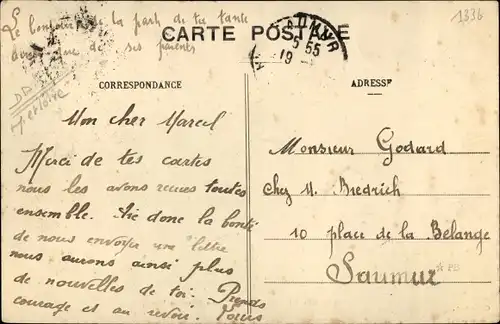 Le bonjour de la part de ta tante
ainsi que de ses parents
CARTE POSTALE
SAUMUR
5 55
19
1336
CORRESPONDANCE
ADRESSE
Mon cher Marcel
Merci de tes cartes
nous les avons reçues toutes
ensemble. Aie donc la bonté
de nous envoyer une lettre
nous aurons ainsi plus
de nouvelles de toi. Prends
courage et au revoir. Tous
Monsieur Godard
chez M. Bredrich
10 place de la Bélange
Saumur